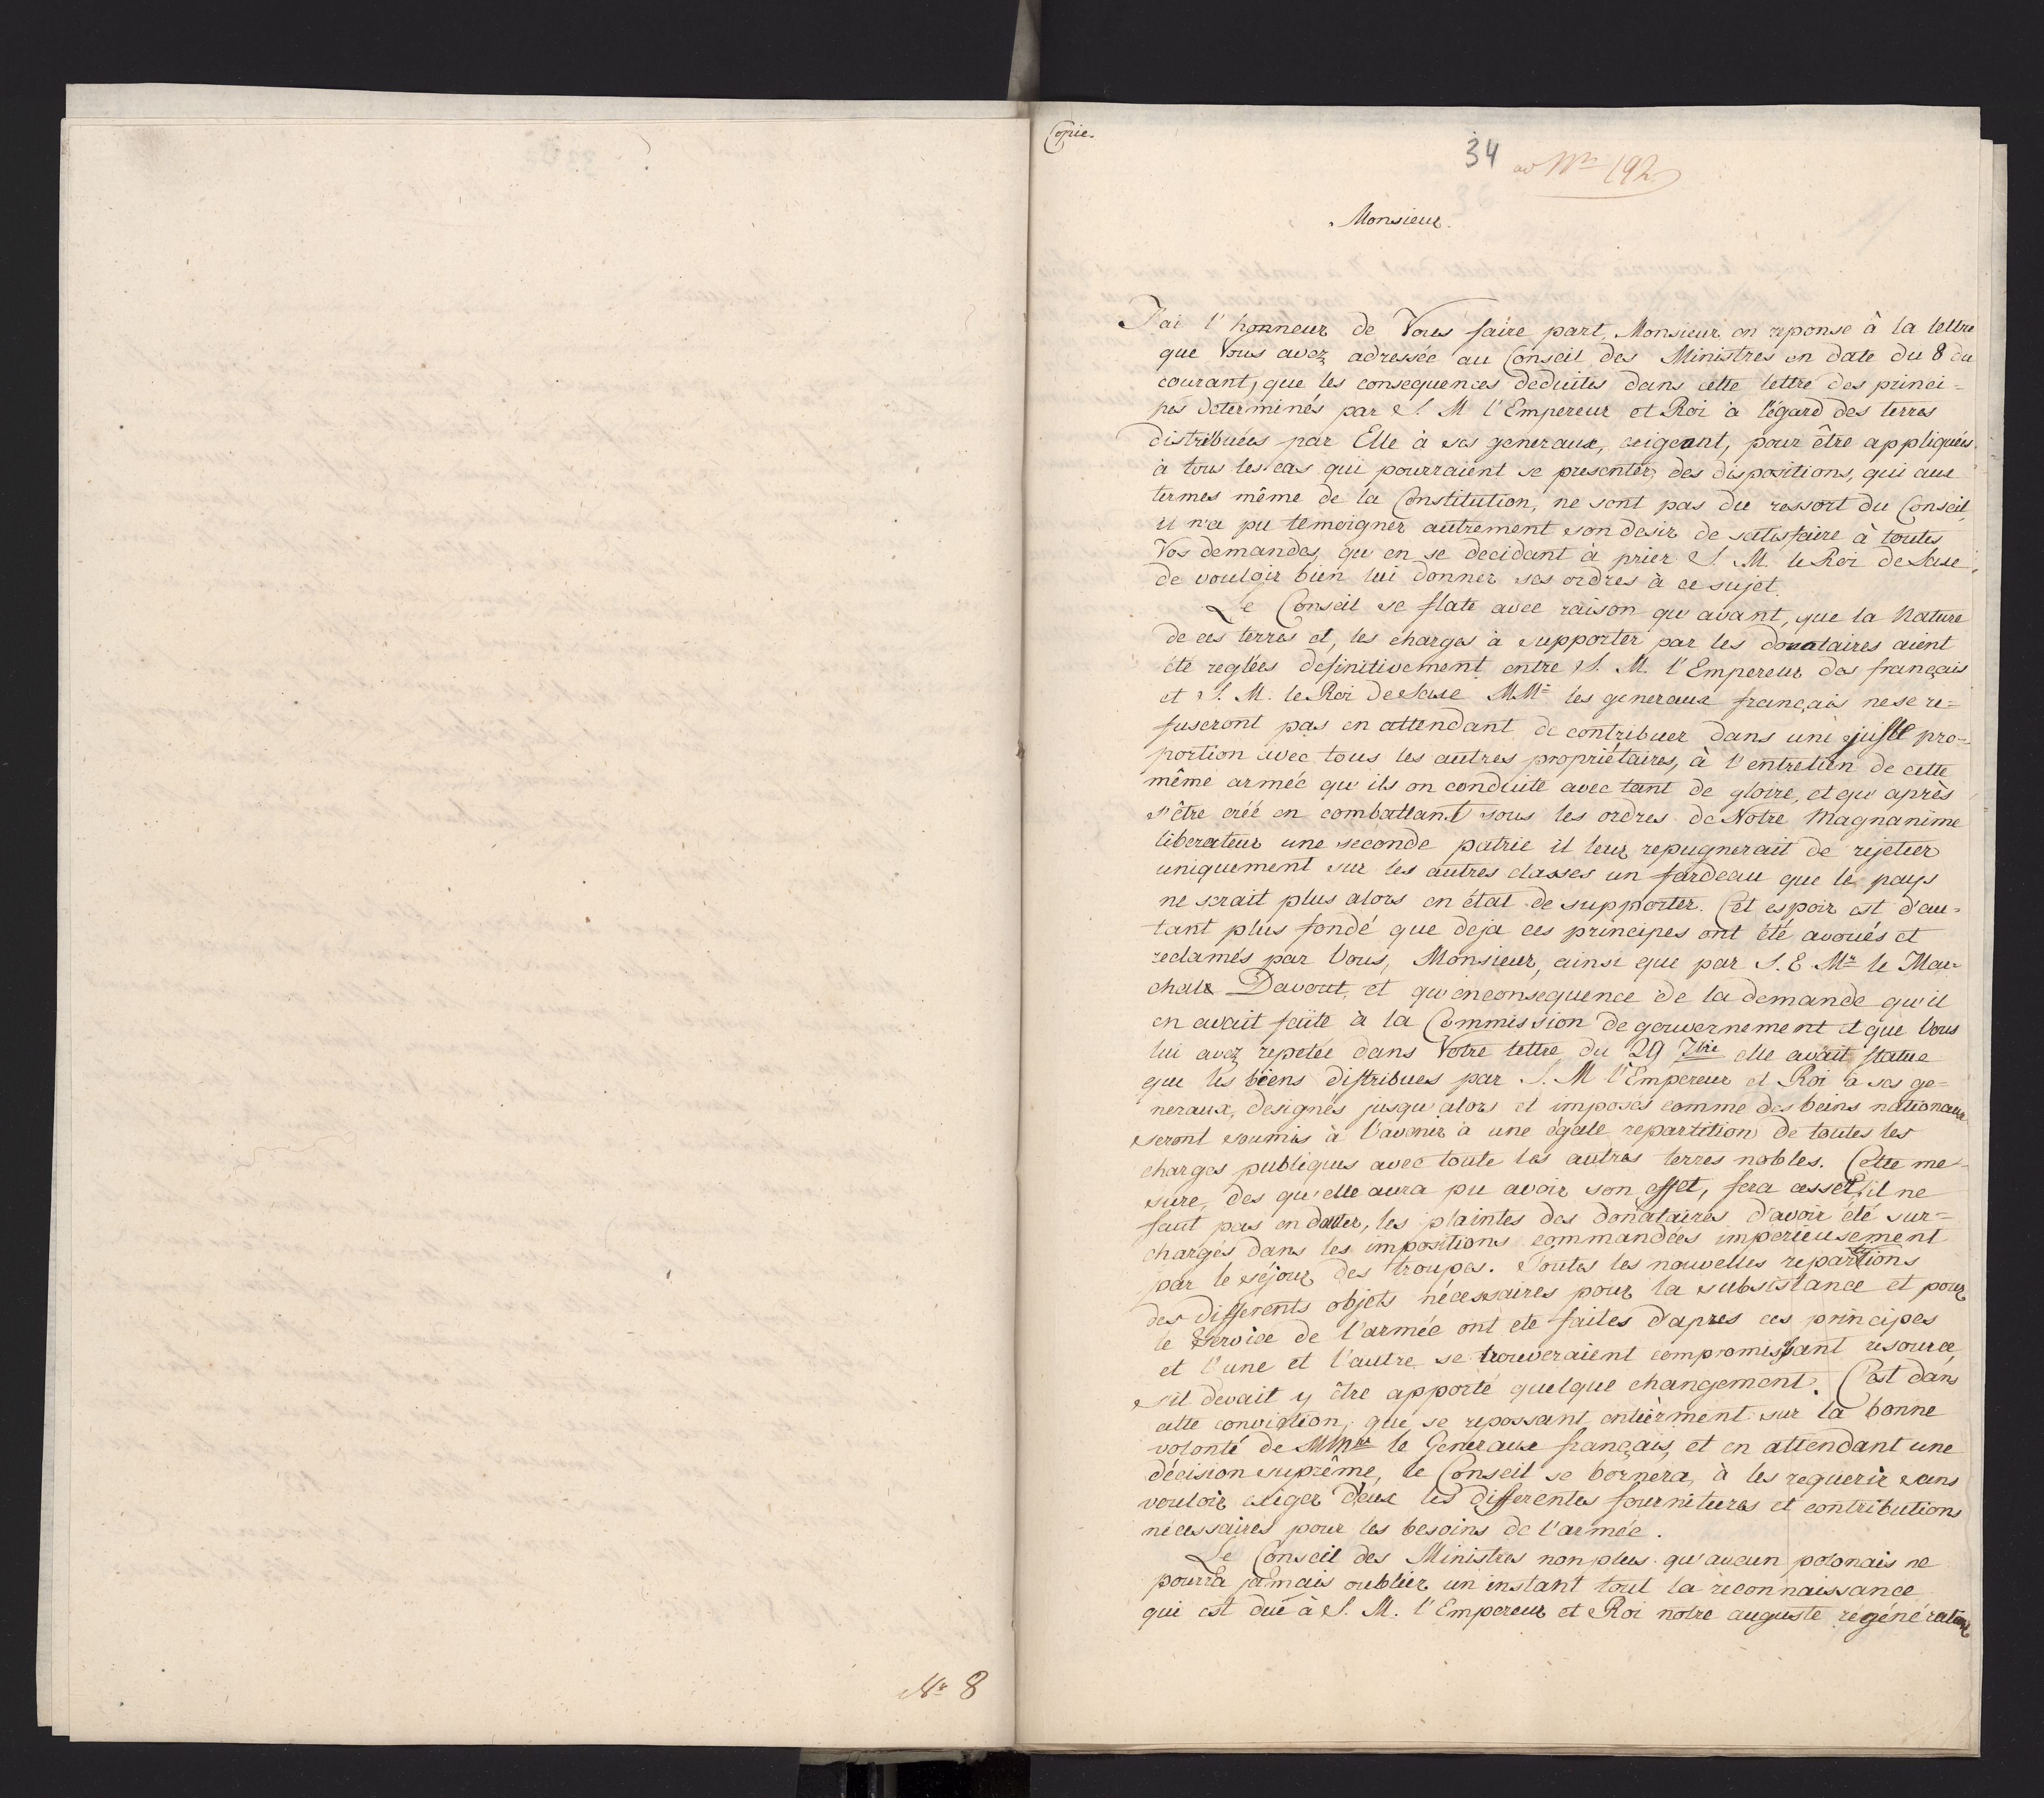 Nr 8
Copie.
34 ad Nrm 192
Monsieur.
J'ai l'honneur de Vous faire part, Monsieur en reponse à la lettre
que Vous avez adressée au Conseil des Ministres en date du 8 du
courant, que les consequences deduites dans cette lettre des princi=
pes determinés par S. M l'Empereur et Roi à l'égard des terres
distribuées par Elle à ses generaux, exigeant, pour être appliquées
à tous les cas qui pourraient se presenter, des dispositions, qui aux
termes même de la Constitution, ne sont pas du ressort du Conseil,
il n'a pu temoigner autrement son desir de satisfaire à toutes
Vos demandes, qu'en se decidant à prier S. M. le Roi de Saxe,
de vouloir bien lui donner ses ordres à ce sujet.
Le Conseil se flate avec raison qu'avant, que la Nature
de ces terres et, les charges à supporter par les donataires aient
été reglées definitivement entre S. M. l'Empereur des français
et S. M. le Roi de Saxe MMrs les generaux français ne se re=
fuseront pas en attendant de contribuer dans une juste pro=
portion avec tous les autres propriétaires, à l'entretien de cette
même armée qu'ils on conduite avec tant de gloire, et qu'après
s'être créé en combattant sous les ordres de Notre Magnanime
liberateur une seconde patrie il leur repugnerait de rejetter
uniquement sur les autres classes un fardeau que le pays
ne serait plus alors en état de supporter. Cet espoir est d'au=
tant plus fondé que deja ces principes ont été avoués et
reclamés par Vous, Monsieur, ainsi que par S. E Mr le Mar=
chale Davout, et qu'en consequence de la demande qu'il
en avait faite à la Commission de gouvernement et que Vous
lui avez repetée dans Votre lettre du 29 7bre elle avait statue
que les biens distribues par S. M l'Empereur et Roi à ses ge=
neraux, designés jusqu'alors et imposés comme des beins nationaux
seront soumis à l'avenir à une égale repartition de toutes les
charges publiques avec toute les autres terres nobles. Cette me=
sure, des qu'elle aura pu avoir son effet, fera cesser, il ne
faut pas en douter, les plaintes des donataires d'avoir été sur=
chargés dans les impositions commandées imperieusement
par le séjour des troupes. Toutes les nouvelles repartitions
des differents objets nécessaires pour la subsistance et pour
le Service de l'armée ont été faites d'apres ces principes
et l'une et l'autre se trouveraient compromis sant resource,
s'il devait y être apporté quelque changement. C'est dans
cette conviction, que se repossant entièrment sur la bonne
volonté de MMrs le Generaux français, et en attendant une
décision suprême, le Conseil se bornera, à les requerir sans
vouloir exiger d'eux les differentes fournitures et contributions
nécessaires pour les besoins de l'armée.
Le Conseil des Ministres non plus qu'aucun polonais ne
pourra jamais oublier un instant tout la reconnaissance
qui est duë à S. M. l'Empereur et Roi notre auguste régénérateur